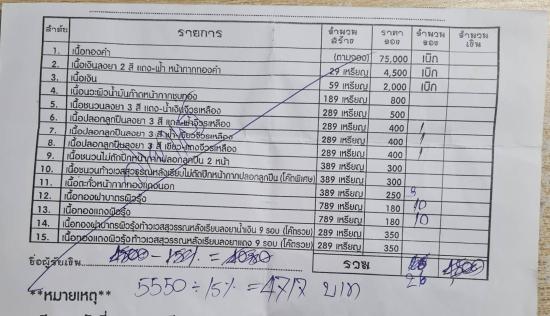 ลำดับ รายการ จำนวนสร้าง ราคาจอง จำนวนจอง จำนวนเงิน
1. เนื้อทองคำ (ตามจอง) 75,000 เบิก
2. เนื้อเงินลงยา 2 สี แดง-ฟ้า หน้ากากทองคำ 29 เหรียญ 4,500 เบิก
3. เนื้อเงิน 59 เหรียญ 2,000 เบิก
4. เนื้อนวะผิวน้ำมันก๊าดหน้ากากชุบทอง 189 เหรียญ 800
5. เนื้อชนวนลงยา 3 สี แดง-น้ำเงินจีวรเหลือง 289 เหรียญ 500
6. เนื้อปลอกลูกปืนลงยา 3 สี จีวรเหลือง 289 เหรียญ 400 /
7. เนื้อปลอกลูกปืนลงยา 3 สี จีวรเหลือง 289 เหรียญ 400 /
8. เนื้อปลอกลูกปืนลงยา 3 สี จีวรเหลือง 289 เหรียญ 400 /
9. เนื้อชนวนไม่ตัดปีกหน้ากากปลอกลูกปืน 2 หน้า 389 เหรียญ 300
10. เนื้อชนวนท้าวเวสสุวรรณหลังเรียบไม่ตัดปีกหน้ากากปลอกลูกปืน (โค๊ดพิเศษ) 389 เหรียญ 300
11. เนื้อตะกั่วหน้ากากทองแดงนอก 389 เหรียญ 250
12. เนื้อทองฝาบาตรผิวรุ้ง 789 เหรียญ 180 10
13. เนื้อทองแดงผิวรุ้ง 789 เหรียญ 180 10
14. เนื้อทองฝาบาตรผิวรุ้งท้าวเวสสุวรรณหลังเรียบลงยาน้ำเงิน 9 รอบ (โค๊ดรวย) 289 เหรียญ 350
15. เนื้อทองแดงผิวรุ้งท้าวเวสสุวรรณหลังเรียบลงยาแดง 9 รอบ (โค๊ดรวย) 289 เหรียญ 350
ชื่อผู้รับเงิน รวม
26
5550 ÷ 15% = 4717 บาท
**หมายเหตุ**